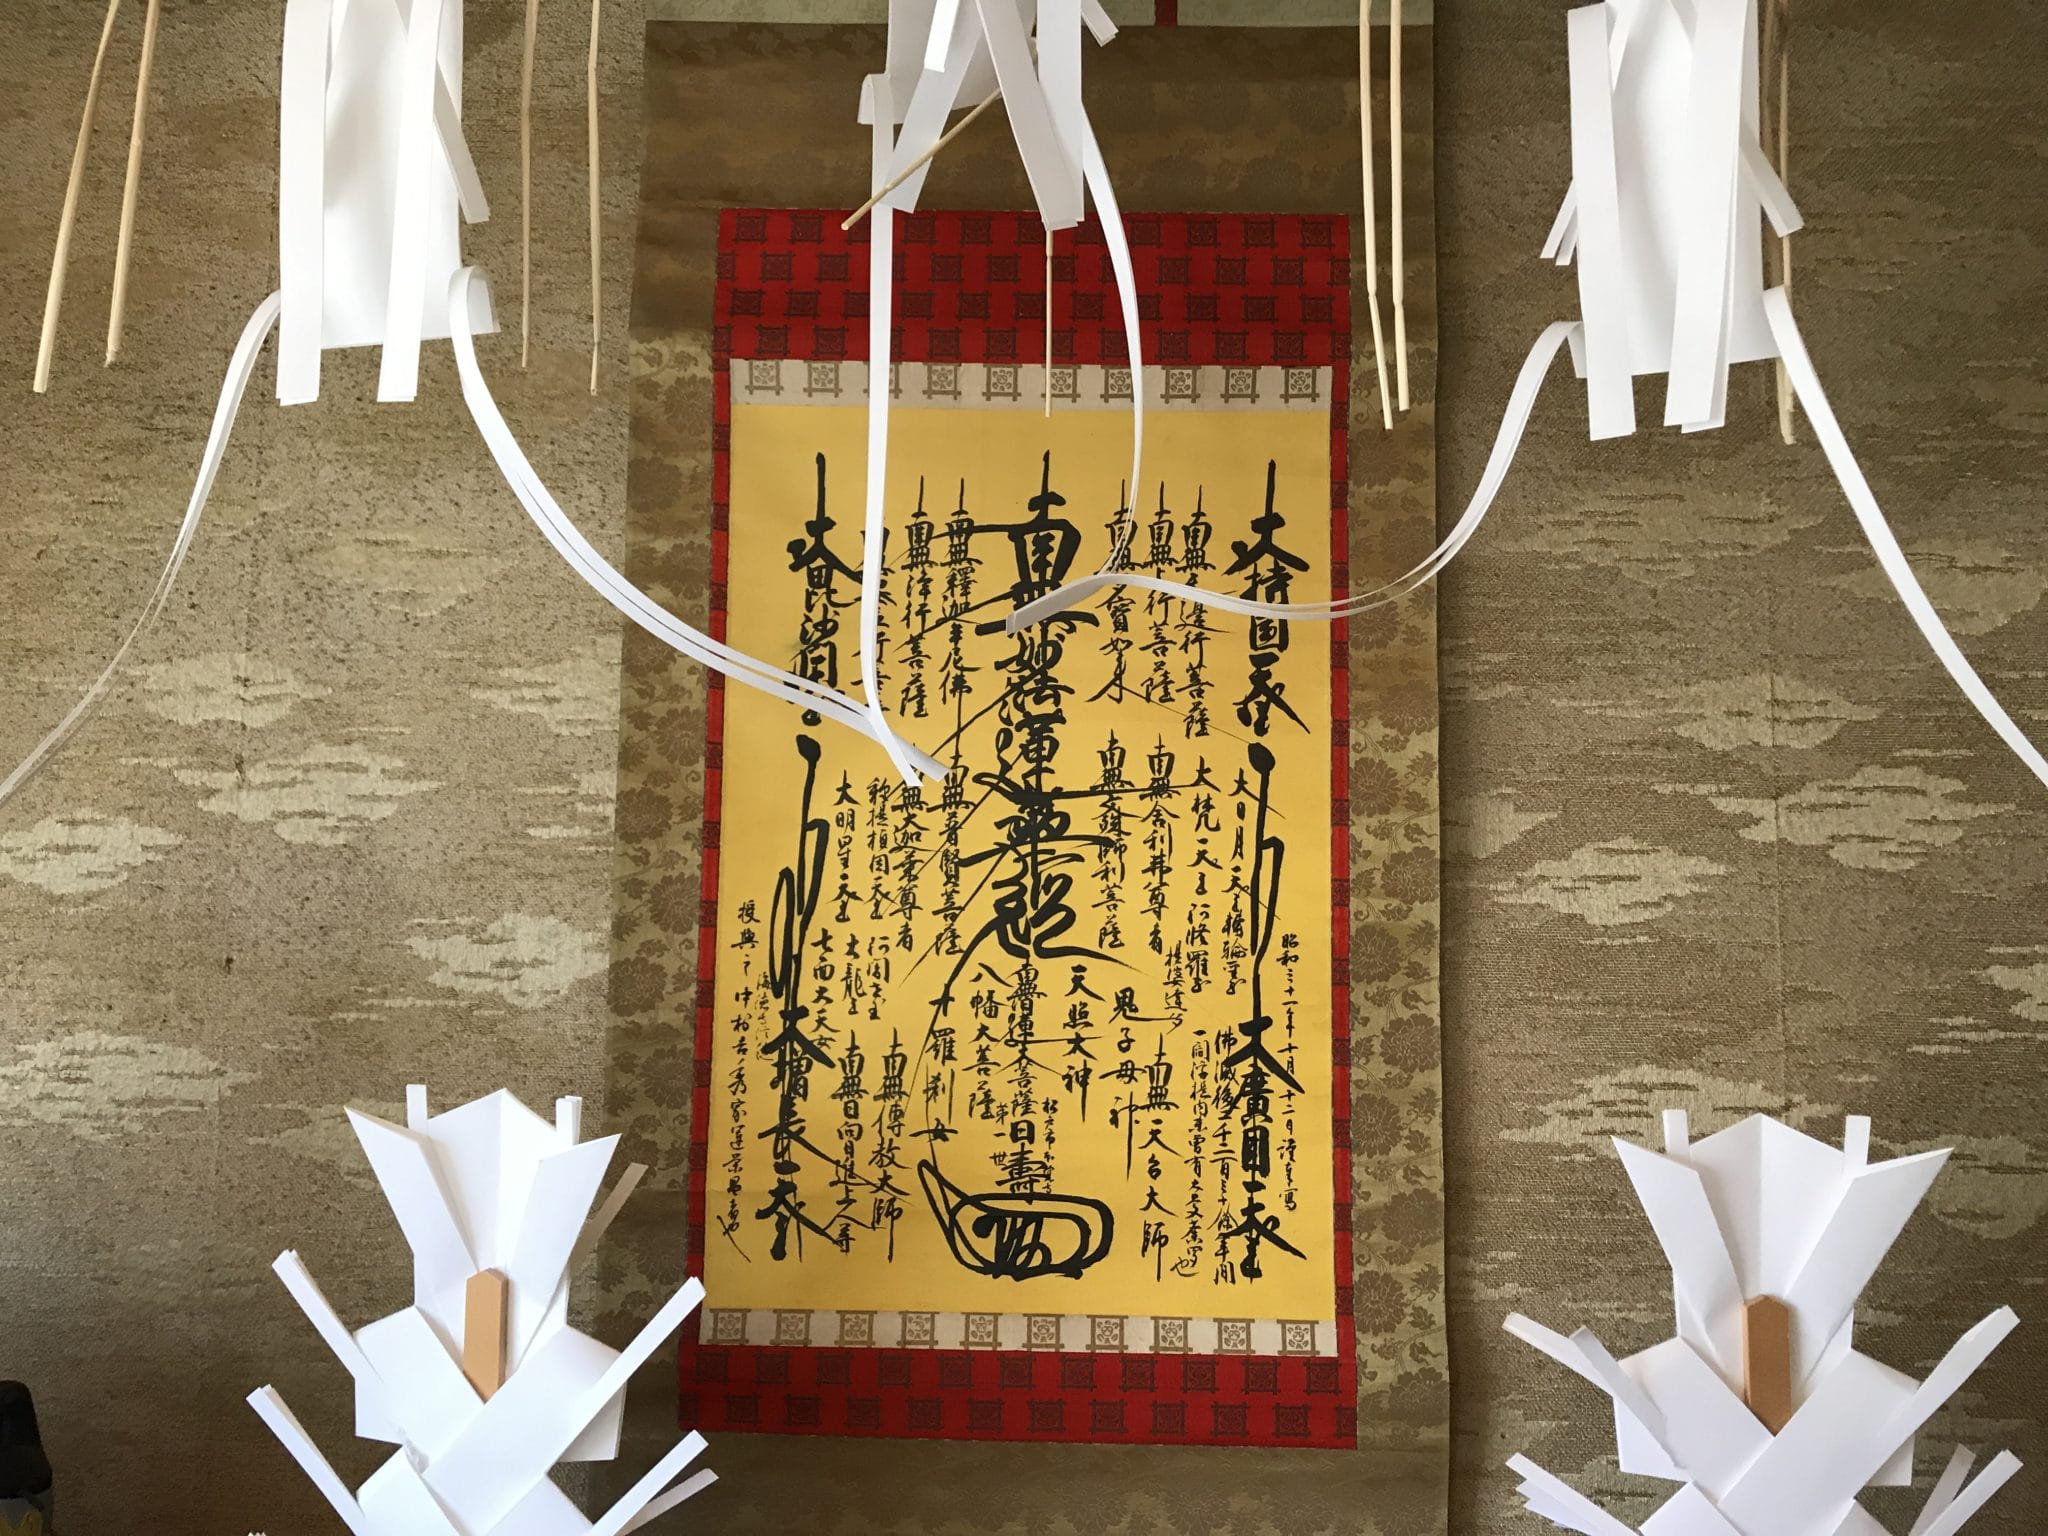 大持国天王
南無無邊行菩薩
南無上行菩薩
南無多寶如来
南無妙法蓮華経
南無釋迦牟尼佛
南無浄行菩薩
大毘沙門天王
大日月天王
轉輪聖王
大梵天王
阿修羅王
提婆達多
南無舎利弗尊者
南無文殊師利菩薩
南無普賢菩薩
南無大迦葉尊者
釋提桓因天王
大明星天王
阿闍世王
大龍王
七面大天女
昭和三十一年十月十二日謹書写
大廣目天王
佛滅後二千二百三十余年間
一閻浮提内未曽有大曼荼羅也
南無天台大師
鬼子母神
天照大神
南無日蓮大菩薩
八幡大菩薩
十羅刹女
南無傳教大師
南無日向日進上人等
大増長天王
第一世
日壽
授與之
中村吉秀家運栄